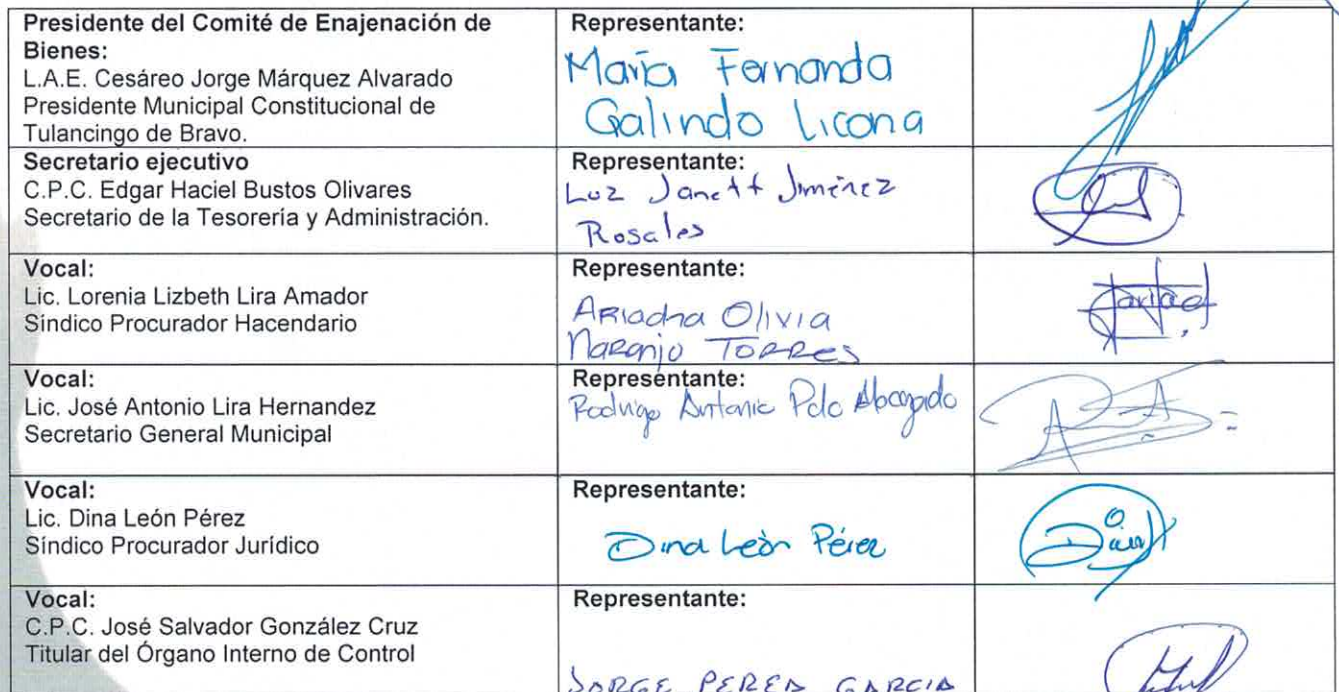 Presidente del Comité de Enajenación de
Bienes:
L.A.E. Cesáreo Jorge Márquez Alvarado
Presidente Municipal Constitucional de
Tulancingo de Bravo.
Representante:
María Fernanda
Galindo Licona
Secretario ejecutivo
C.P.C. Edgar Haciel Bustos Olivares
Secretario de la Tesorería y Administración.
Representante:
Luz Janett Jiménez
Rosales
Vocal:
Lic. Lorenia Lizbeth Lira Amador
Síndico Procurador Hacendario
Representante:
Ariadna Olivia
Naranjo Torres
Vocal:
Lic. José Antonio Lira Hernandez
Secretario General Municipal
Representante:
Rodrigo Antonio Polo
Vocal:
Lic. Dina León Pérez
Síndico Procurador Jurídico
Representante:
Dina León Pérez
Vocal:
C.P.C. José Salvador González Cruz
Titular del Órgano Interno de Control
Representante:
JORGE GARCIA